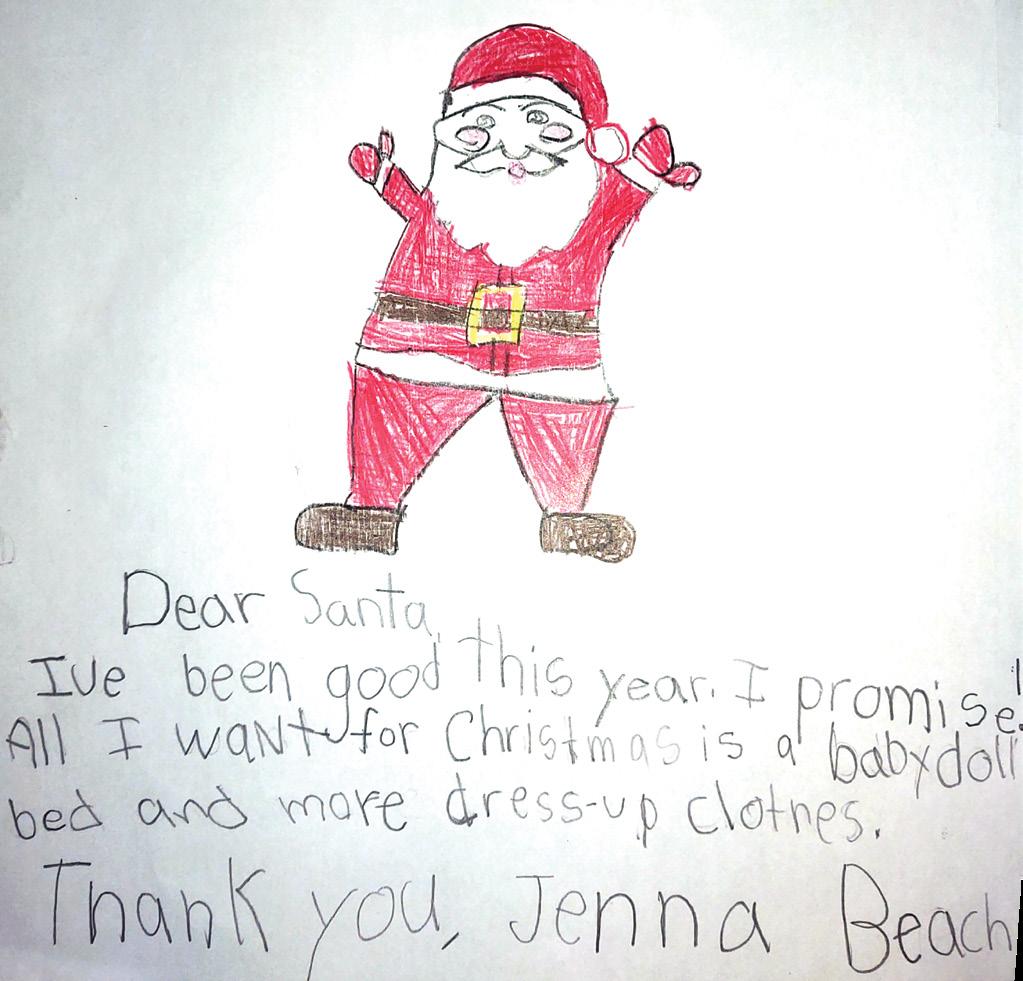 Dear Santa,
Ive been good this year. I promise!
All I want for Christmas is a babydoll
bed and more dress-up clothes.
Thank you, Jenna Beach